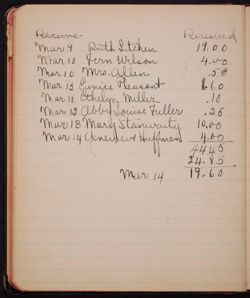 Receive Received
Mar 9 Ruth Stehen 19.00
Mar 10 Fern Wilson 4.00
Mar 10 Mrs. Allen .50
Mar 13 Eunice Pleasant 8.60
Mar 11 Ethelyn Miller .10
Mar 12 Abby Louise Fuller .25
Mar 13 Mary Stanwarity 10.00
Mar 14 Genevieve Huffman 4.00
44.45
24.85
Mar 14. 19.60